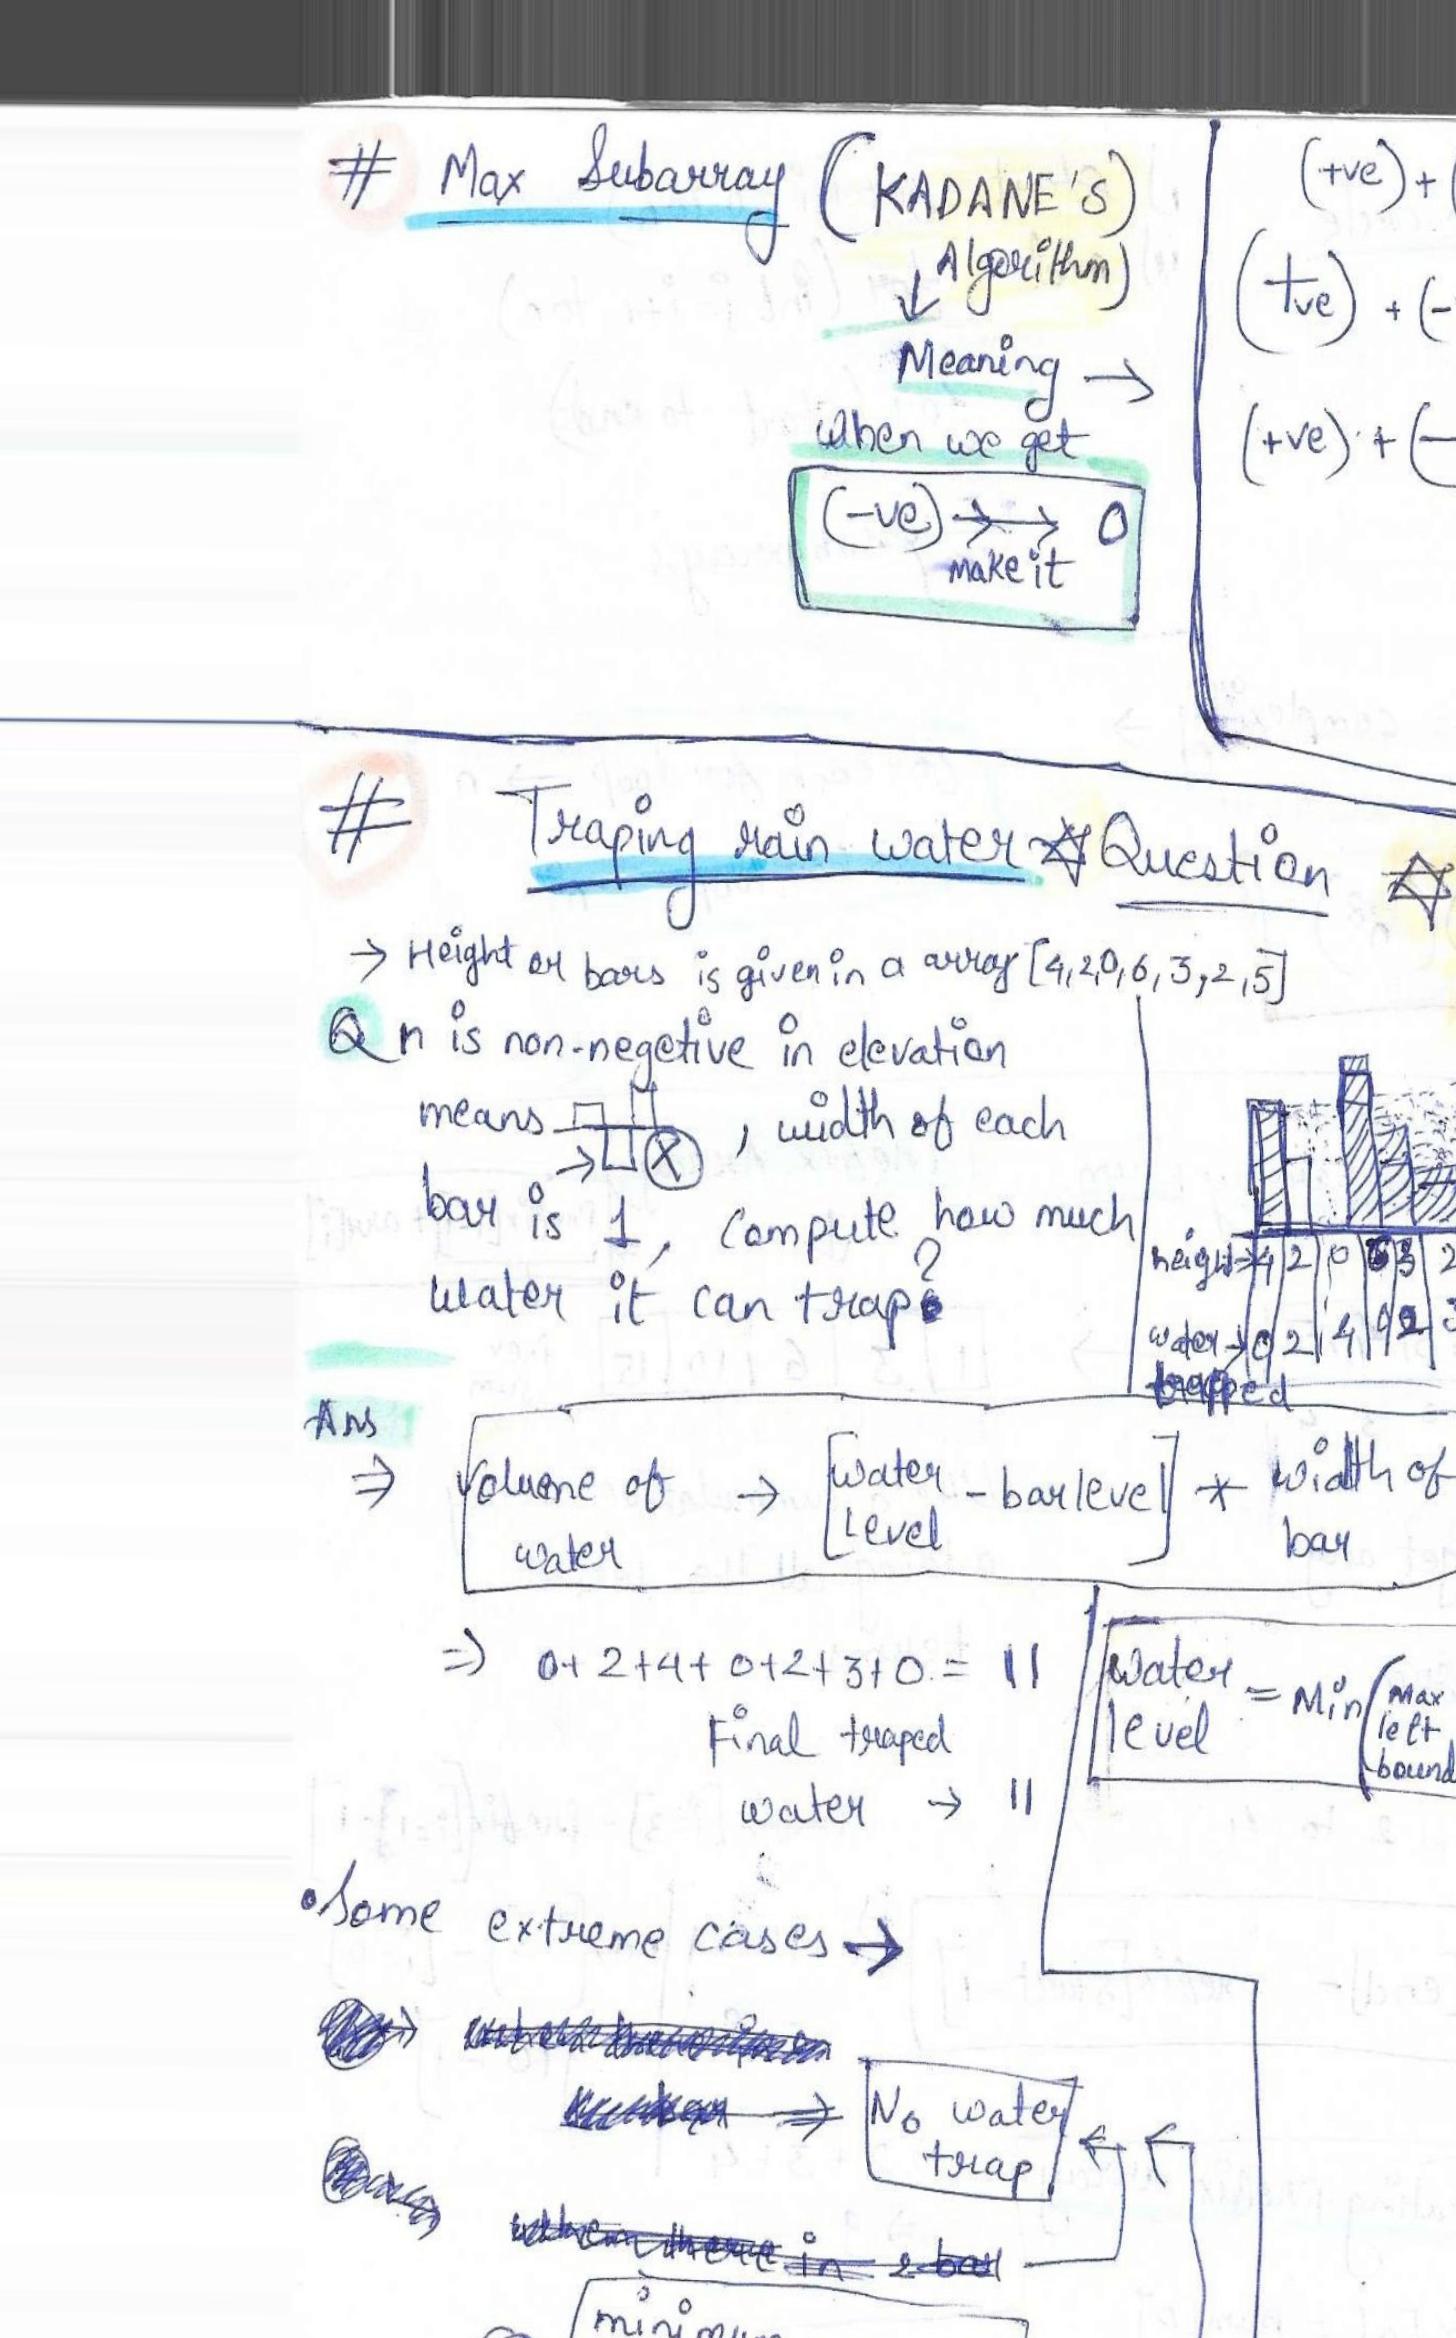 # Max Subarray (KADANE'S
Algorithm)
↓
Meaning →
when we get
(-ve) →→ 0
make it
(+ve) + (
(+ve) + (-
(+ve) + (-
# Traping rain water ☆ Question ☆
→ Height or bars is given in a array [4,2,0,6,3,2,5]
Q n is non-negetive in elevation
means , width of each
bar is 1, compute how much
water it can trap?
height→ 4 2 0 6 3 2
water→ 0 2 4 0 2 3
trapped
Ans
⇒ Volume of → [water - bar level] * width of
water level bar
⇒ 0+2+4+0+2+3+0 = 11
Final traped
water → 11
water = Min(Max
level left
bound
• Some extreme cases →
⇒ No water
trap
when there in 2 bar
minimum